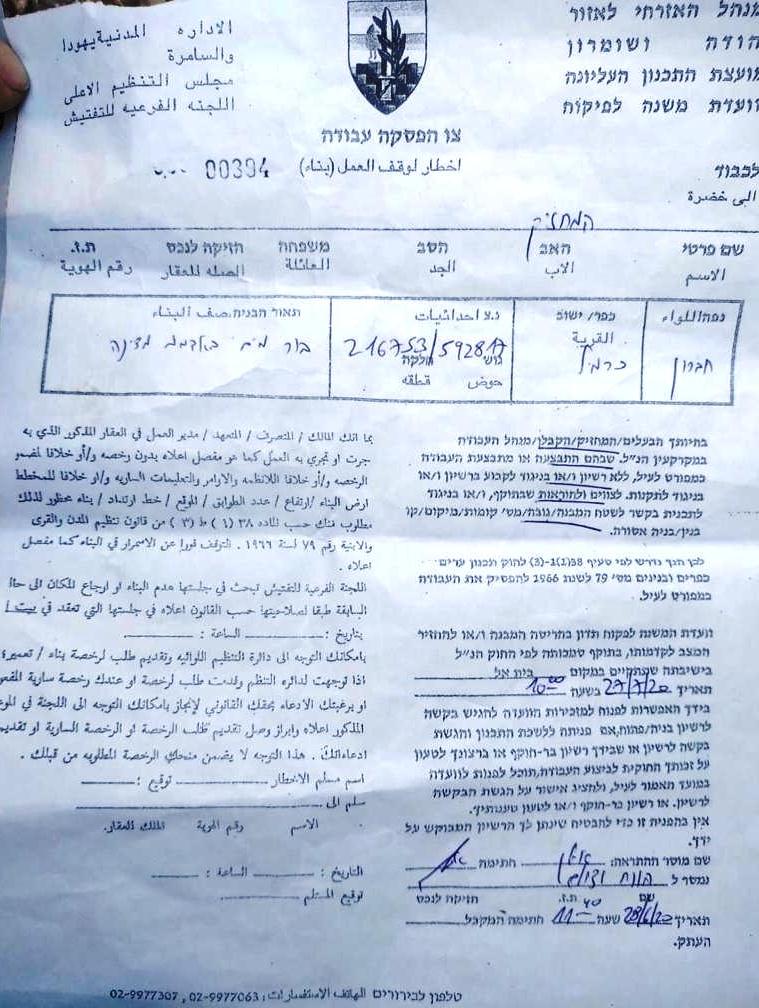 الاداره المدنية يهودا
والسامرة
مجلس التنظيم الاعلى
اللجنه الفرعيه للتفتيش
מנהל האזרחי לאזור
הודה ושומרון
מועצת התכנון העליונה
וועדת משנה לפיקוח
צו הפסקה עבודה
اخطار لوقف العمل (بناء)
00394
לכבוד
الى خضرة
המחזיק
שם פרטי האב הסב משפחה חזיקה לנכס ת.ז.
الاسم الاب الجد العائلة الصله للعقار رقم الهوية
נפה اللواء כפר/ ישוב נ.צ احداثيات תאור הבניה صف البناء
القرية
חברון כרמל 216753/592817 בור מים באדמת מדינה
גוש חלקה
حوض قطعه
בהיותך הבעלים/המחזיק/הקבלן/מנהל העבודה
במקרקעין הנ"ל. שבהם התבצעה או מתבצעת העבודה
כמפורט לעיל, ללא רשיון ו/או בניגוד לקבוע ברשיון ו/או
בניגוד לתקנות. לצווים ולהוראות שבתוקף, ו/או בניגוד
לתכנית בקשר לשטח המבנה/גובה/מס' קומות/מיקום/קו
בנין/בניה אסורה.
לכן הנך נדרש לפי סעיף 38(1)(ב)-(3) לחוק תכנון ערים
כפרים ובנינים מס' 79 לשנת 1966 להפסיק את העבודה
כמפורט לעיל.
וועדת המשנה לפקוח תדון בהריסת המבנה ו/או להחזיר
המצב לקדמותו, בתוקף סמכותה לפי החוק הנ"ל
בישיבתה שתתקיים במקום בית אל
תאריך 27/7/20 בשעה 10-00
בידך האפשרות לפנות למזכירות הוועדה להגיש בקשה
לרשיון בניה/פתוח, אם פניתה ללשכת התכנון והגשת
בקשה לרשיון או שבידך רשיון בר-תוקף או ברצונך לטעון
על זכותך החוקית לביצוע העבודה, תוכל לפנות לוועדה
במועד האמור לעיל, ולהציג אישור על הגשת הבקשה
לרשיון. או רשיון בר-תוקף ו/או לטעון טענותיך.
אין בהפניה זו כדי להבטיח שינתן לך הרשיון המבוקש על
ידך.
שם מוסר ההתראה: חתימה
נמסר ל הונח
שם ת.ז. חזיקה לנכס
תאריך 28/6/20 שעה 11-40 חתימת המקבל
העתק.
بما انك المالك / المتصرف / المتعهد / مدير العمل في العقار المذكور الذي به
جرت او تجري به العمل كما هو مفصل اعلاه بدون رخصه و/أو خلافا لمضمو
الرخصه و/أو خلافا للانظمه والاوامر والتعليمات الساريه و/او خلافا للمخطط
ارض البناء /ارتفاع / عدد الطوابق / الموقع / خط ارتداد / بناء محظور لذلك
مطلوب منك حسب الماده ٣٨ (١) ط (٣) من قانون تنظيم المدن والقرى
والابنية رقم ٧٩ لسنة ١٩٦٦. التوقف فورا عن الاستمرار في البناء كما مفصل
اعلاه.
اللجنة الفرعية للتفتيش تبحث في جلستها هدم البناء او ارجاع المكان الى حالـ
السابقة طبقا لصلاحيتها حسب القانون اعلاه في جلستها التي تعقد في بيت ا
بتاريخ: الساعة :
بامكانك التوجه الى دائرة التنظيم اللوائيه وتقديم طلب لرخصة بناء / تعميرة
اذا توجهت لدائره التنظم وقدمت طلب لرخصة او عندك رخصة سارية المفعو
او برغبتك الادعاء بحقك القانوني لإنجاز بامكانك التوجه الى اللجنة في الموع
المذكور اعلاه وابراز وصل تقديم طلب الرخصة او الرخصة السارية او تقديم
ادعاءاتك. هذا التوجه لا يضمن منحك الرخصة المطلوبه من قبلك.
اسم مسلم الاخطار توقيع :
سلم الى
الاسم رقم الهوية المالك للعقار.
التاريخ : الساعة :
توقيع المتسلم
טלפון לבירורים الهاتف الاستفسارات: 02-9977063, 02-9977307